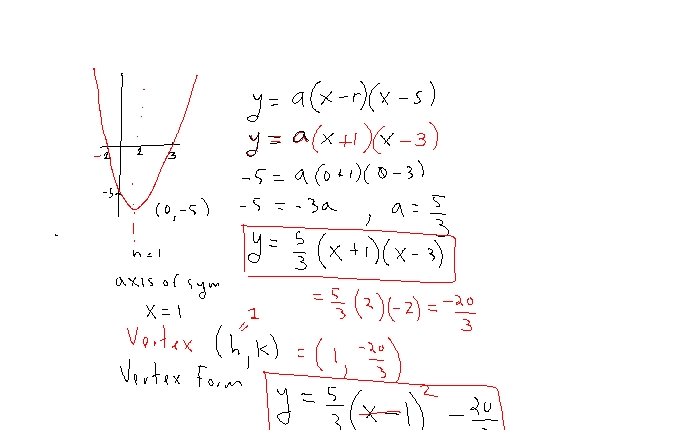 y = a(x-r)(x-s)
y = a(x+1)(x-3)
-5 = a(0+1)(0-3)
-5 = -3a , a = 5/3
y = 5/3 (x+1)(x-3)
= 5/3 (2)(-2) = -20/3
2 3
-5
(0,-5)
h=1
axis of sym
x=1
Vertex (h,k) = (1, -20/3)
1
Vertex Form
y = 5/3 (x-1)² - 20